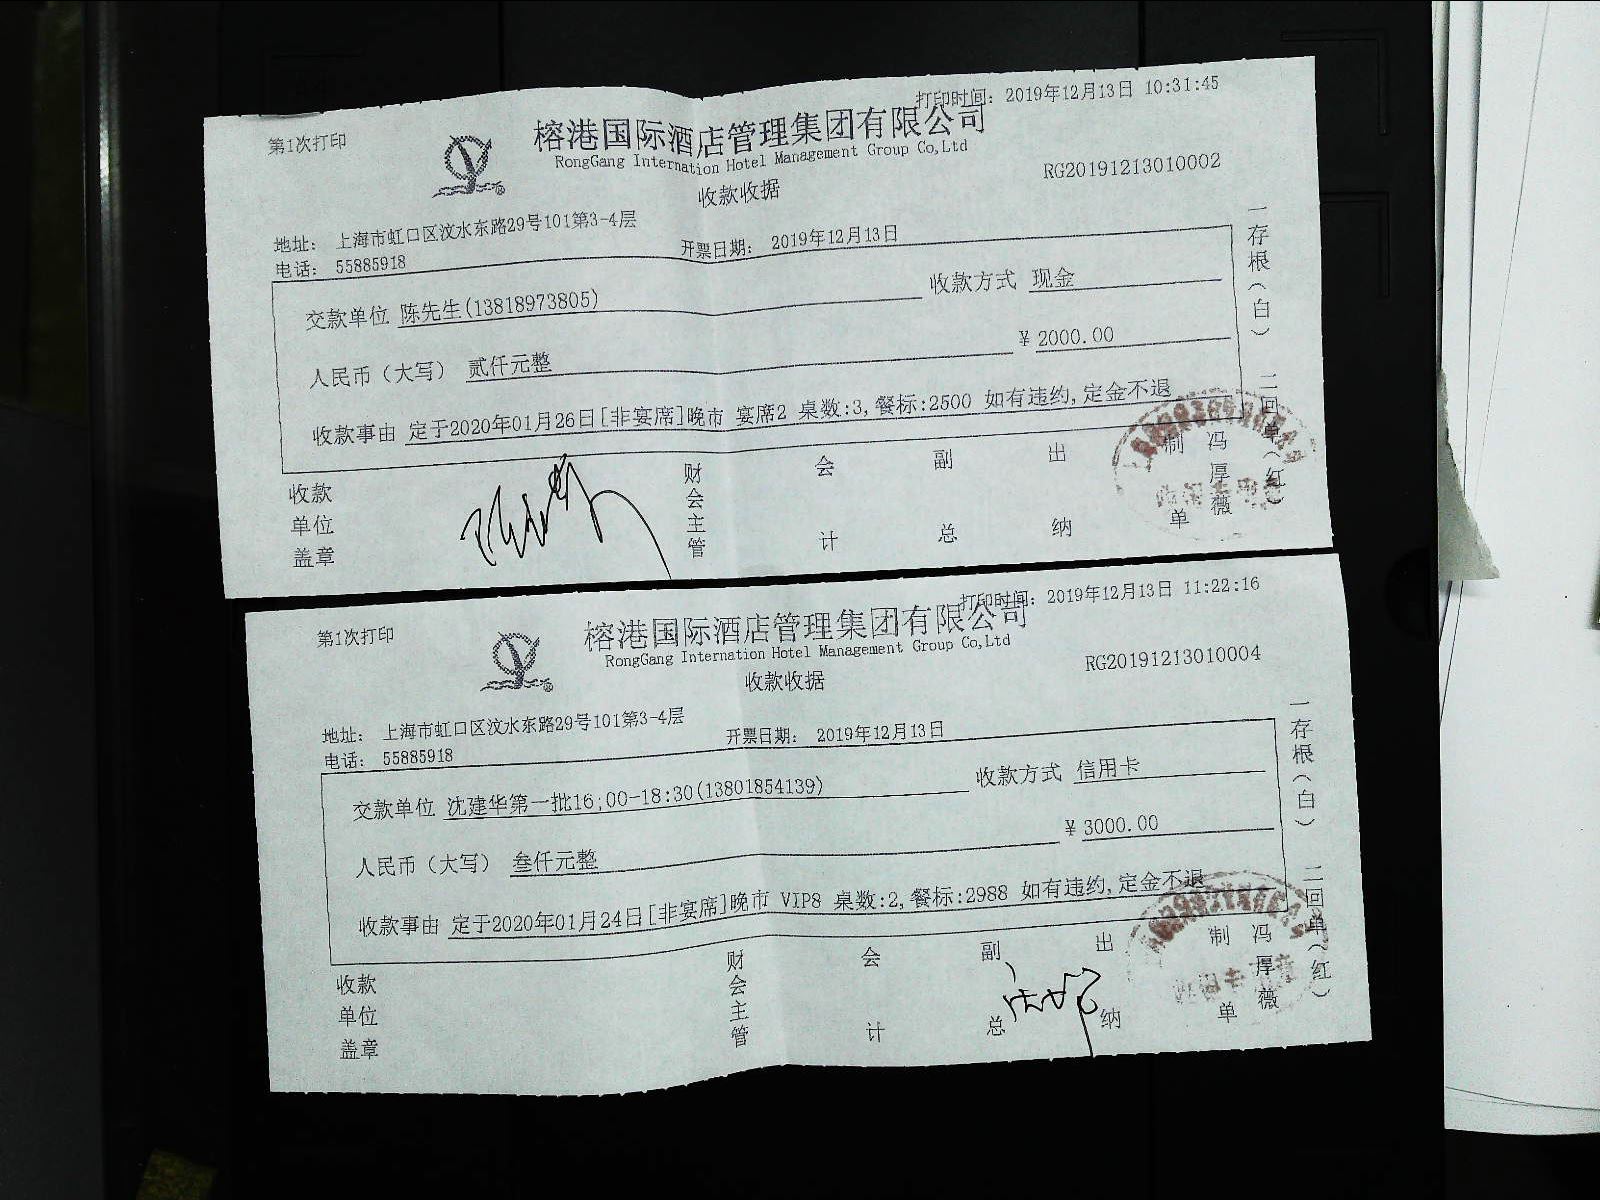 打印时间: 2019年12月13日 10:31:45
第1次打印
榕港国际酒店管理集团有限公司
RongGang Internation Hotel Management Group Co,Ltd
RG20191213010002
收款收据
地址: 上海市虹口区汶水东路29号101第3-4层
电话: 55885918
开票日期: 2019年12月13日
交款单位 陈先生(13818973805)
收款方式 现金
人民币（大写） 贰仟元整
¥ 2000.00
收款事由 定于2020年01月26日[非宴席]晚市 宴席2 桌数:3,餐标:2500 如有违约,定金不退
收款单位盖章
财会主管
会计
副总
出纳
制单
冯厚薇
一存根（白）
二回单（红）
打印时间: 2019年12月13日 11:22:16
第1次打印
榕港国际酒店管理集团有限公司
RongGang Internation Hotel Management Group Co,Ltd
RG20191213010004
收款收据
地址: 上海市虹口区汶水东路29号101第3-4层
电话: 55885918
开票日期: 2019年12月13日
交款单位 沈建华第一批16;00-18:30(13801854139)
收款方式 信用卡
人民币（大写） 叁仟元整
¥ 3000.00
收款事由 定于2020年01月24日[非宴席]晚市 VIP8 桌数:2,餐标:2988 如有违约,定金不退
收款单位盖章
财会主管
会计
副总
出纳
制单
冯厚薇
一存根（白）
二回单（红）